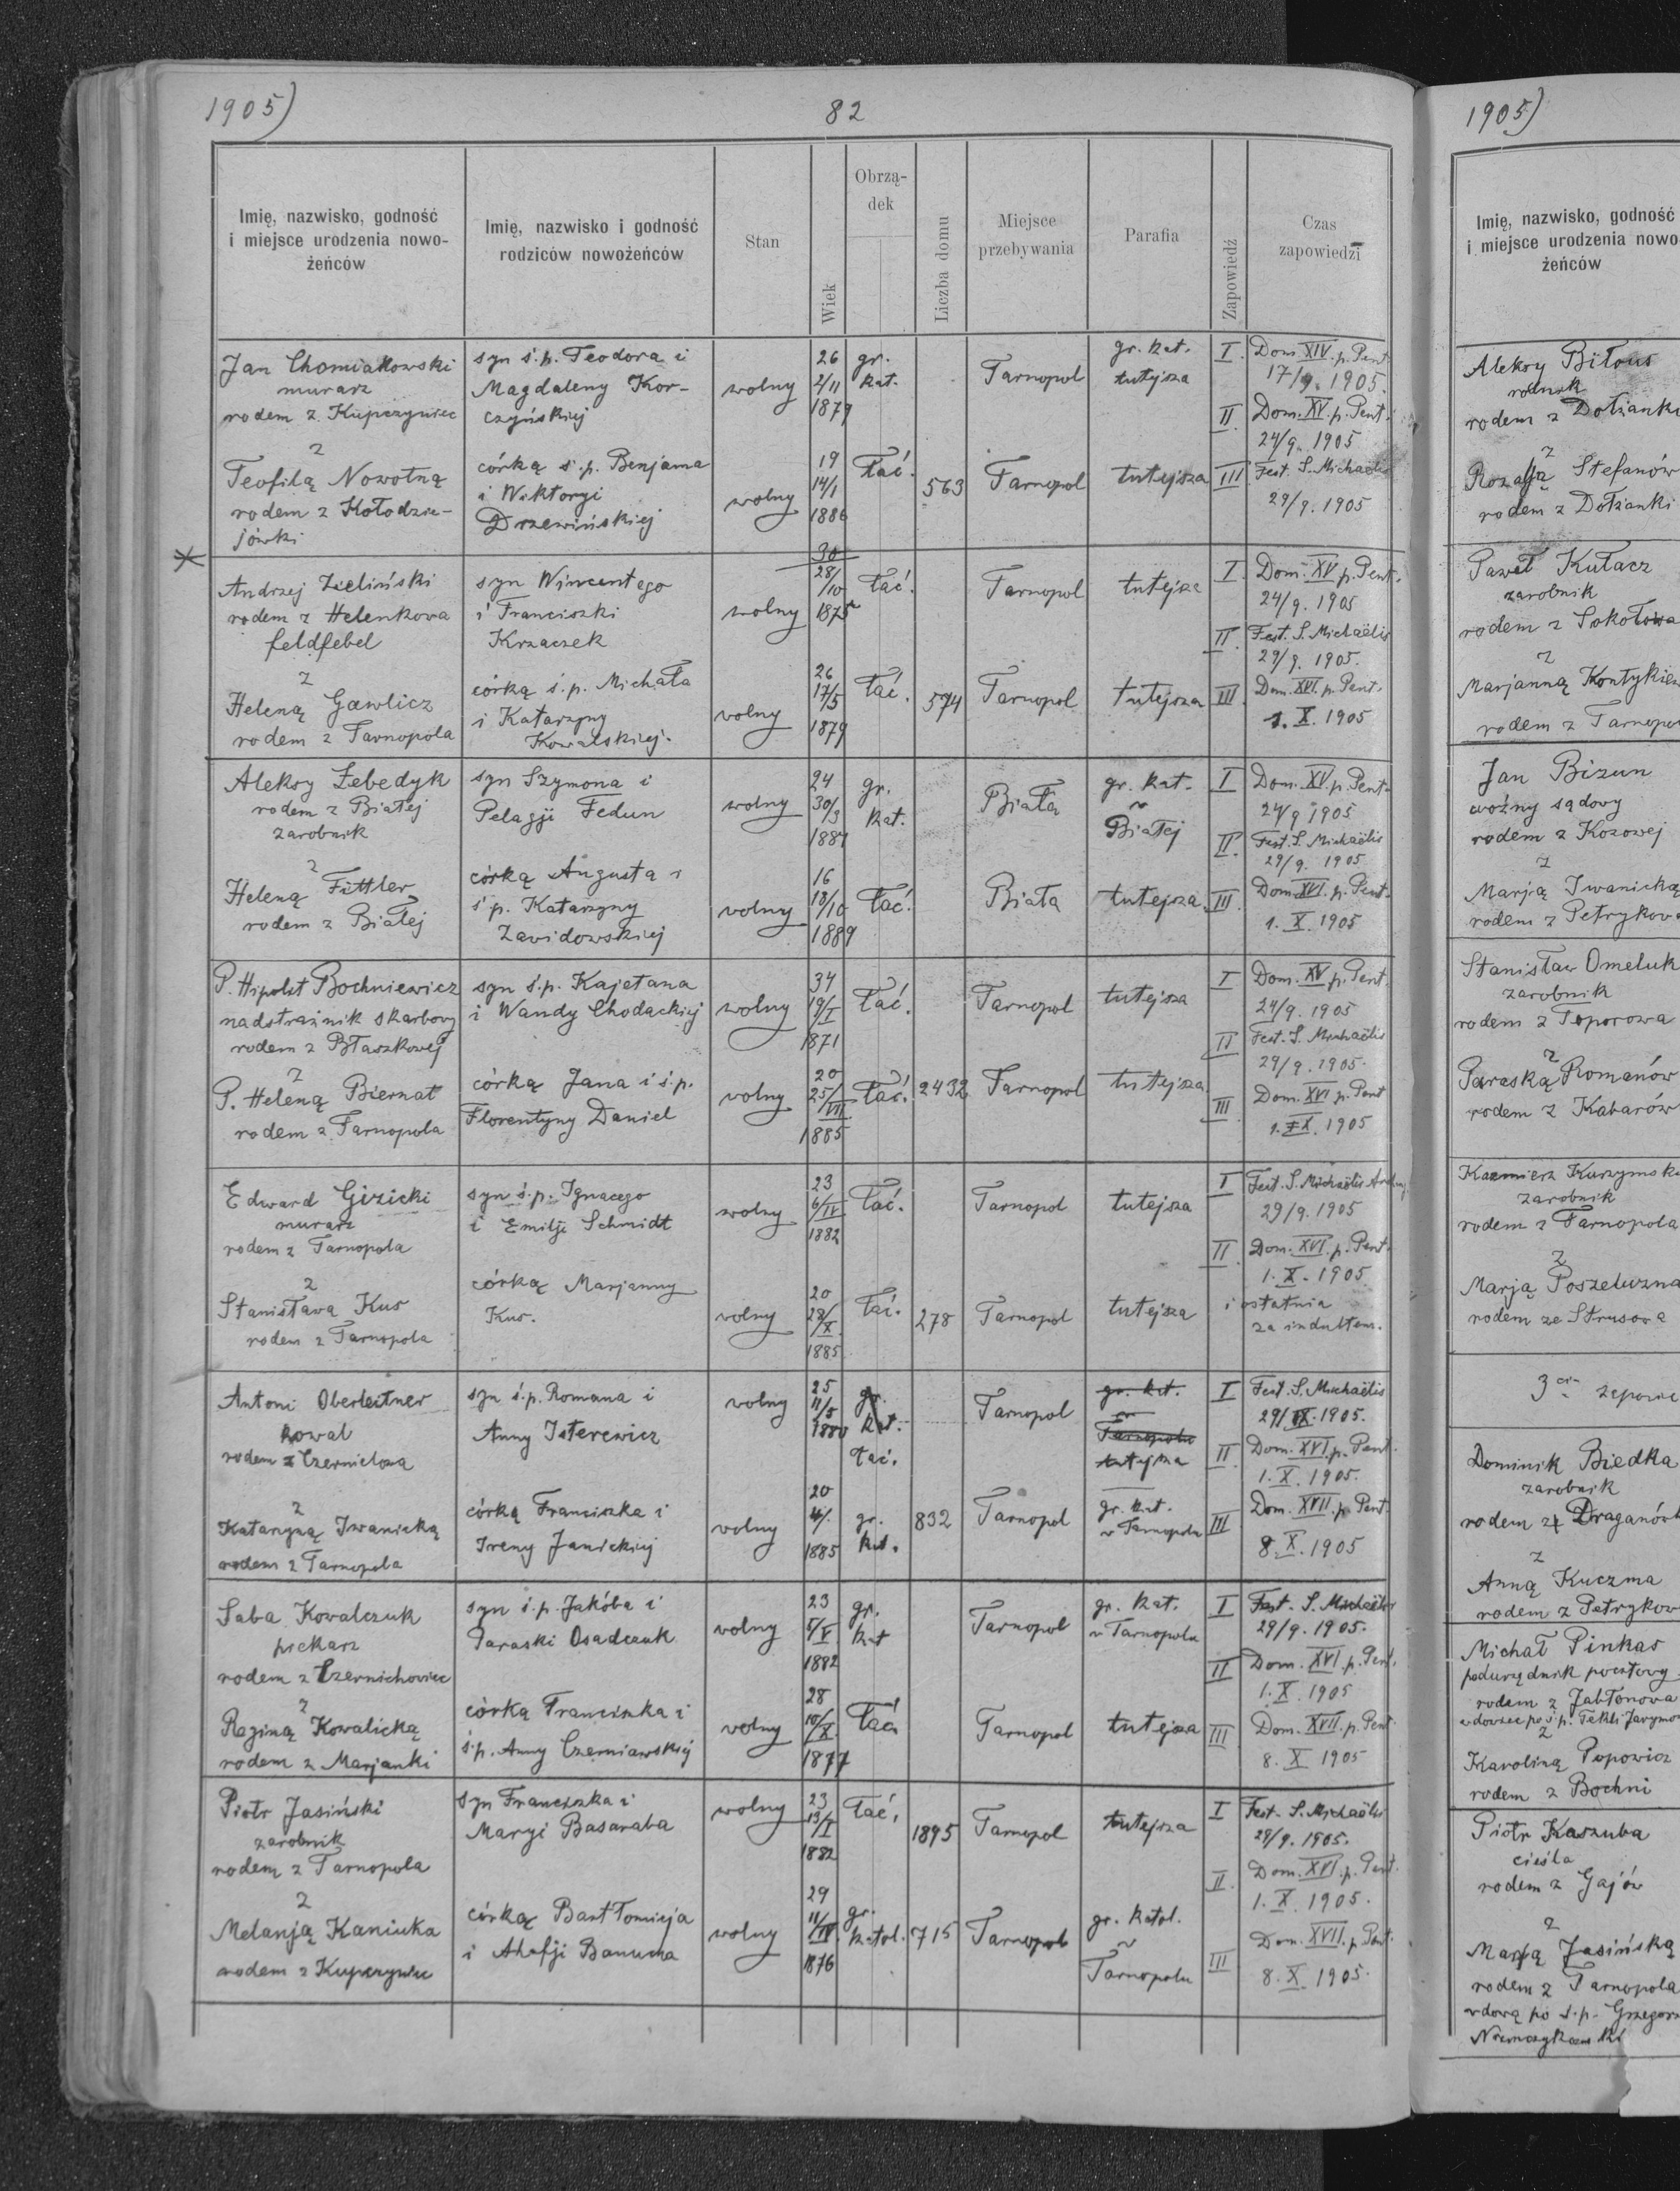 1905)
82
Imię, nazwisko, godność i miejsce urodzenia nowo-żeńców
Imię, nazwisko i godność rodziców nowożeńców
Stan
Wiek
Obrzą-dek
Liczba domu
Miejsce przebywania
Parafia
Zapowiedź
Czas zapowiedzi
Jan Chomiakowski
murarz
rodem z Kupczyniec
syn ś.p. Teodora i
Magdaleny Kor-
czyńskiej
wolny
26
2/11
1879
gr.
kat.
Tarnopol
gr. kat.
tutejsza
I. Dom. XIV. p. Pent
17/9. 1905.
II. Dom. XV. p. Pent.
24/9. 1905
z
Teofilą Nowotną
rodem z Kołodzie-
jówki
córką ś.p. Benjama
i Wiktoryi
Drzewińskiej
wolny
19
14/1
1886
łać.
563
Tarnopol
tutejsza
III Fest. S. Michaelis
29/9. 1905
Andrzej Zieliński
rodem z Helenkowa
feldfebel
syn Wincentego
i Franciszki
Krzaczek
wolny
30
28/10
1875
łać.
Tarnopol
tutejsza
I. Dom. XV p. Pent.
24/9. 1905
II. Fest. S. Michaëlis
29/9. 1905.
z
Heleną Gawlicz
rodem z Tarnopola
córką ś.p. Michała
i Katarzyny
Kowalskiej.
wolny
26
17/5
1879
łać.
574
Tarnopol
tutejsza
III. Dom. XVI. p. Pent.
1. X. 1905
Aleksy Łebedyk
rodem z Białej
zarobnik
syn Szymona i
Pelagji Fedun
wolny
24
30/3
1881
gr.
kat.
Białą
gr. kat.
w
Białej
I Dom. XV. p. Pent.
24/9 1905
II. Fest. S. Michaëlis
29/9. 1905
z
Heleną Fittler
rodem z Białej
córką Augusta i
ś.p. Katarzyny
Zavidowskiej
wolny
16
18/10
1889
łać.
Biała
tutejsza
III. Dom. XVI. p. Pent.
1. X. 1905
P. Hipolit Bochniewicz
nadstrażnik skarbowy
rodem z Błaszkowej
syn ś.p. Kajetana
i Wandy Chodackiej
wolny
34
19/I
1871
łać.
Tarnopol
tutejsza
I Dom. XV p. Pent.
24/9. 1905
II Fest. S. Michaëlis
29/9. 1905.
z
P. Heleną Biernat
rodem z Tarnopola
córką Jana i ś.p.
Florentyny Daniel
wolny
20
25/VII
1885
łać.
2432
Tarnopol
tutejsza
III Dom. XVI p. Pent
1. X. 1905
Edward Gizicki
murarz
rodem z Tarnopola
syn ś.p. Ignacego
i Emilji Schmidt
wolny
23
6/IV
1882
łać.
Tarnopol
tutejsza
I Fest. S. Michaëlis
29/9. 1905
II Dom. XVI. p. Pent.
1. X. 1905
z
Stanisława Kus
rodem z Tarnopola
córką Marjanny
Kus.
wolny
20
28/X.
1885
łać.
278
Tarnopol
tutejsza
i ostatnia
za indultem.
Antoni Oberleitner
kowal
rodem z Czernielowa
syn ś.p. Romana i
Anny Isterewicz
wolny
25
11/5
1880
gr.
kat.
łać.
Tarnopol
gr. kat.
w
Tarnopolu
tutejsza
I Fest. S. Michaëlis
29/IX. 1905.
II Dom. XVI. p. Pent.
1. X. 1905.
z
Katarzyną Iwanicką
rodem z Tarnopola
córką Franciszka i
Ireny Janickiej
wolny
20
1885
gr.
kat.
832
Tarnopol
gr. kat.
w Tarnopolu
III Dom. XVII. p. Pent.
8. X. 1905
Saba Kowalczuk
piekarz
rodem z Czernichowiec
syn ś.p. Jakóba i
Paraski Osadczuk
wolny
23
5/V
1882
gr.
kat
Tarnopol
gr. kat.
w Tarnopolu
I Fest. S. Michaëlis
29/9. 1905.
II Dom. XVI. p. Pent.
1. X. 1905
z
Reginą Kowalicką
rodem z Marjanki
córką Franciszka i
ś.p. Anny Czerniawskiej
wolny
28
10/IX
1877
łać.
Tarnopol
tutejsza
III Dom. XVII. p. Pent
8. X 1905
Piotr Jasiński
zarobnik
rodem z Tarnopola
syn Franciszka i
Maryi Basaraba
wolny
23
13/I
1882
łać.
1895
Tarnopol
tutejsza
I Fest. S. Michaëlis
29/9. 1905.
II. Dom. XVI. p. Pent.
1. X. 1905.
z
Melanją Kaniuka
rodem z Kupczyniec
córką Bartłomieja
i Ahafji Banucha
wolny
29
11/IV
1876
gr.
katol.
715
Tarnopol
gr. katol.
w
Tarnopolu
III Dom. XVII. p. Pent.
8. X. 1905.
1905)
Imię, nazwisko, godność
i miejsce urodzenia nowo
żeńców
Aleksy Biłous
rolnik
rodem z Dołżanki
z
Rozalją Stefanów
rodem z Dołżanki
Paweł Kułacz
zarobnik
rodem z Sokołowa
z
Marjanną
rodem z Tarnopo
Jan Bizun
woźny sądowy
rodem z Kozowej
z
Marją Iwanicką
rodem z Petrykow
Stanisław Omeluk
zarobnik
rodem z Toporowa
z
Paraską Romanów
rodem z Kabarów
Kazimierz
zarobnik
rodem z Tarnopola
z
Marją Poszeluzna
rodem ze Strusowa
3cia zapowie
Dominik Biedka
zarobnik
rodem z Draganów
z
Anną Kuczma
rodem z Petrykow
Michał Pinkas
podurzędnik pocztowy
rodem z Jabłonowa
wdowiec po ś.p. Tekli
z
Karoliną Popowicz
rodem z Bochni
Piotr Kaszuba
cieśla
rodem z Gajów
z
Marją Jasińską
rodem z Tarnopola
wdową po ś.p. Grzegorz